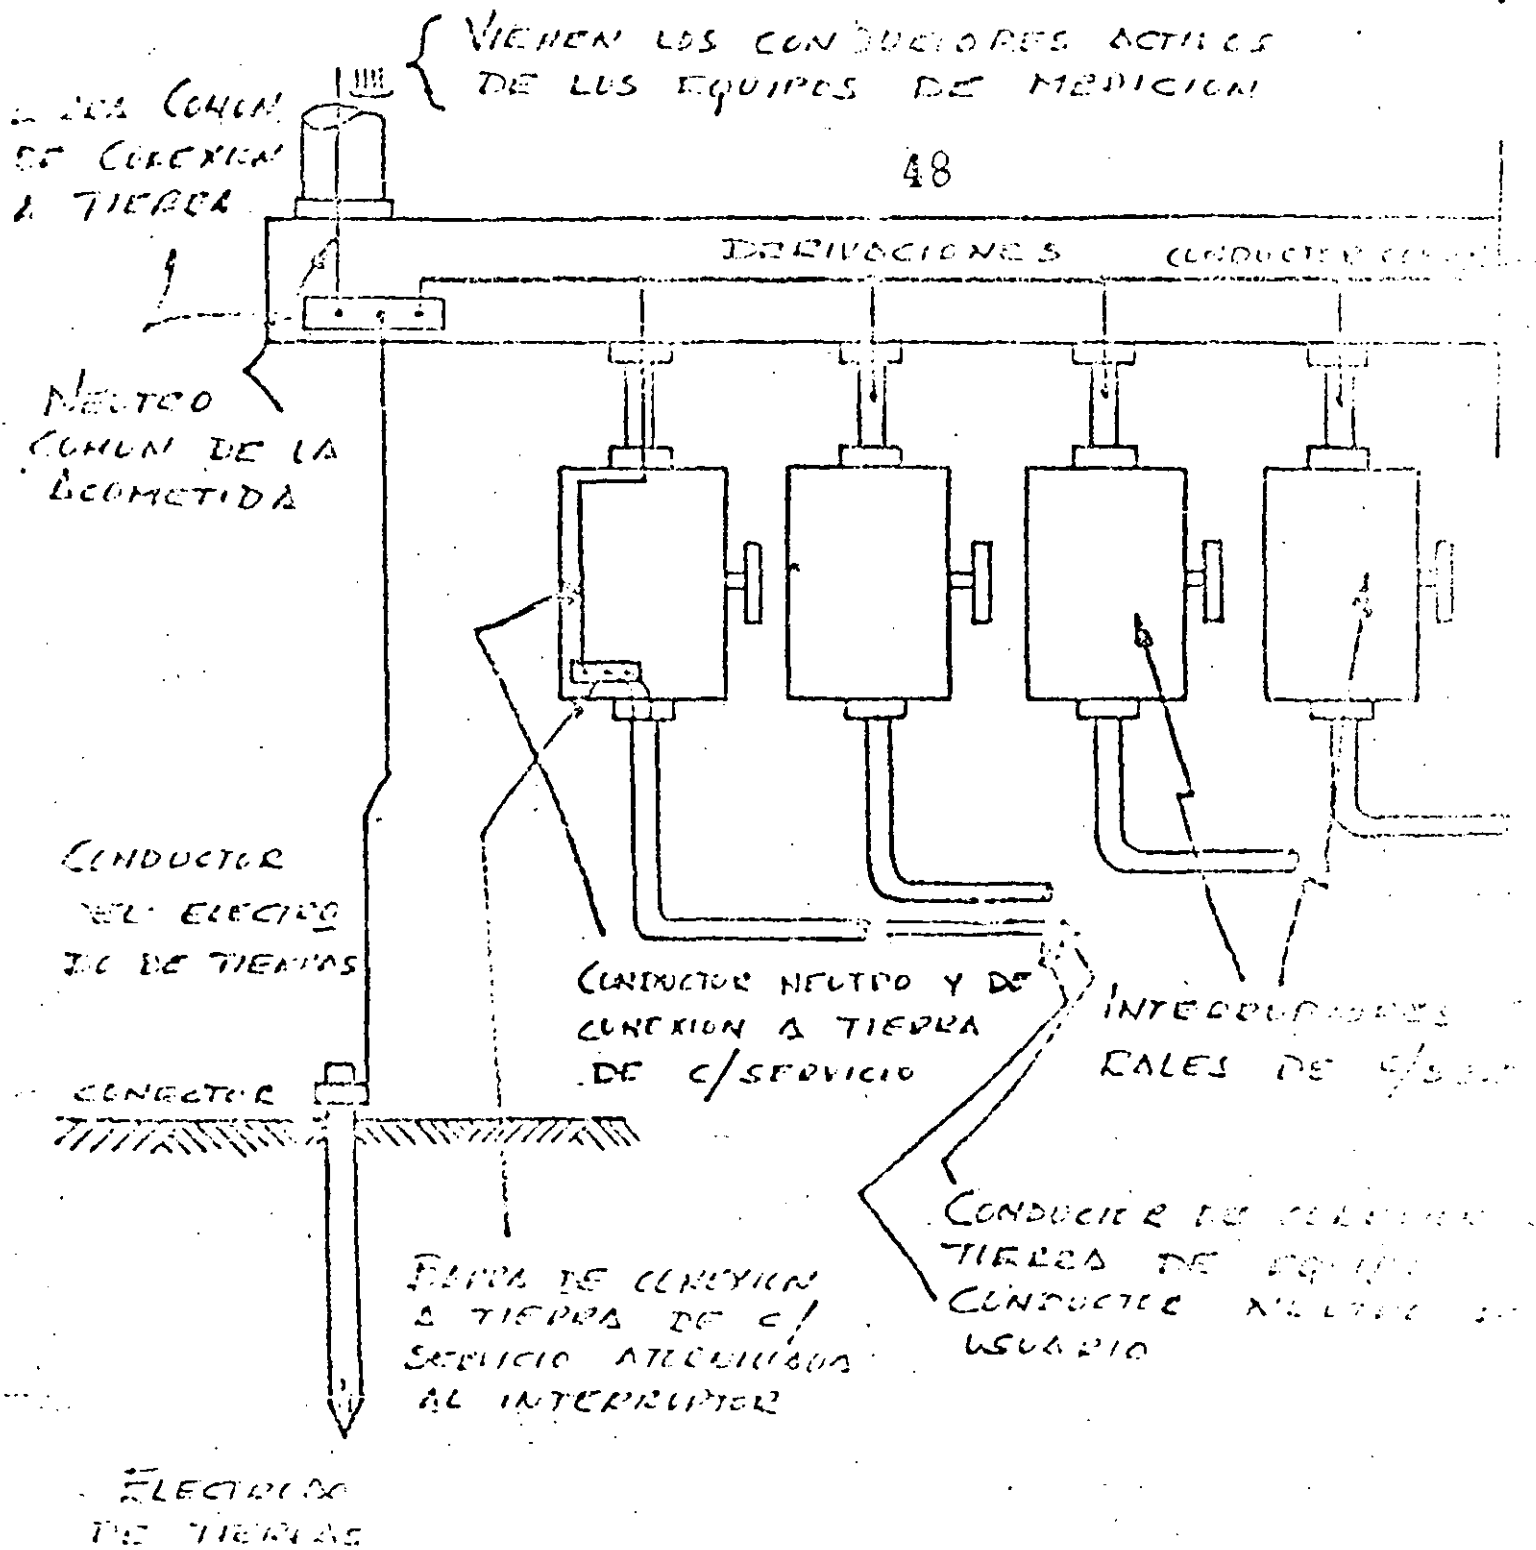 VIENEN LOS CONDUCTORES ACTIVOS
DE LOS EQUIPOS DE MEDICION
COMUN
DE CONEXION
A TIERRA
48
DERIVACIONES CONDUCTOR
NEUTRO
COMUN DE LA
ACOMETIDA
CONDUCTOR
DEL ELECTRO
DO DE TIERRAS
CONDUCTOR NEUTRO Y DE
CONEXION A TIERRA
DE C/SERVICIO
INTERRUPTORES
RALES DE
CONECTOR
CONDUCTOR DE
TIERRA DE
CONDUCTOR NEUTRO
USUARIO
BARRA DE CONEXION
A TIERRA DE C/
SERVICIO ATORNILLADA
AL INTERRUPTOR
ELECTRODO
DE TIERRAS